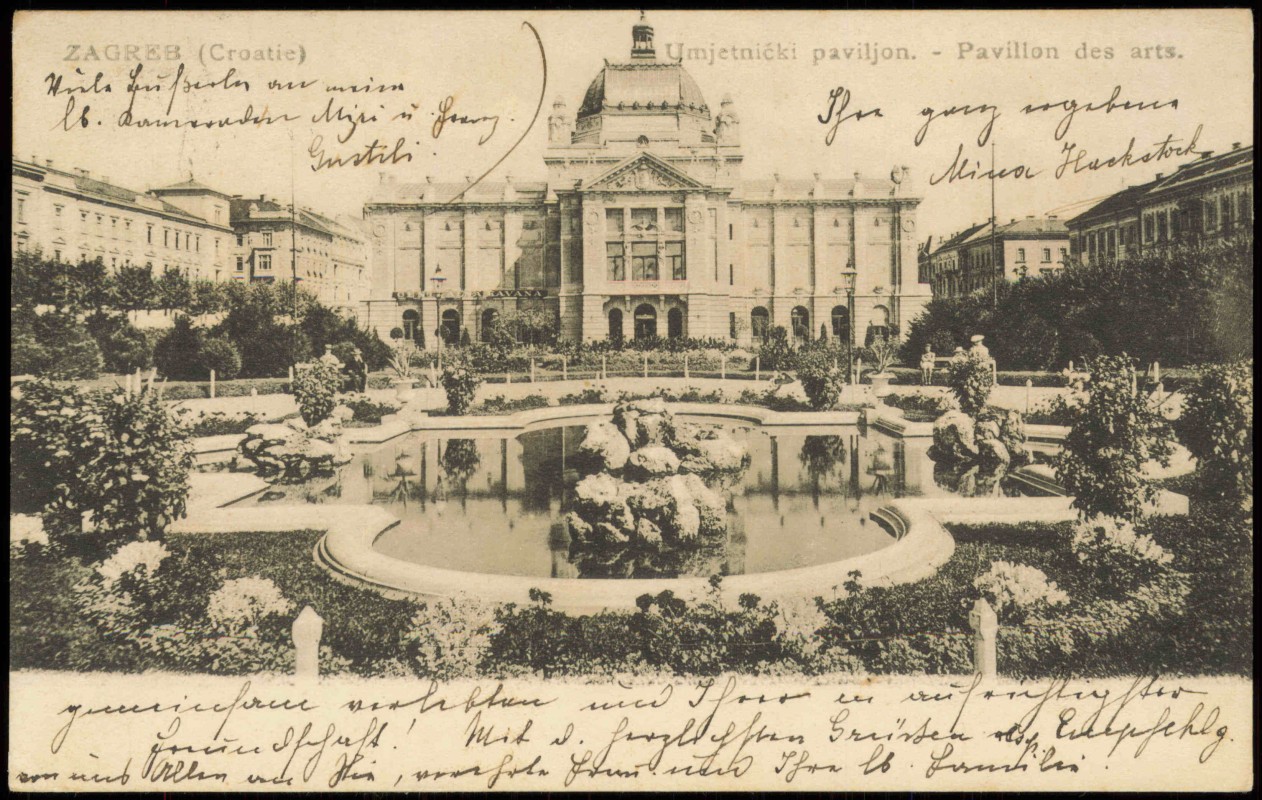 ZAGREB (Croatie)
Umjetnićki paviljon. - Pavillon des arts.
Viele an meine
lb. Kameraden Mizi u. Franz.
Gustili.
Ihre ganz ergebene
Mina Hackstock
gemeinsam verlebten und Ihrer in aufrichtigster
Freundschaft! Mit d. herzlichsten Grüssen u. Empfehlg.
von uns Allen an Sie, verehrte Frau und Ihre lb. Familie.